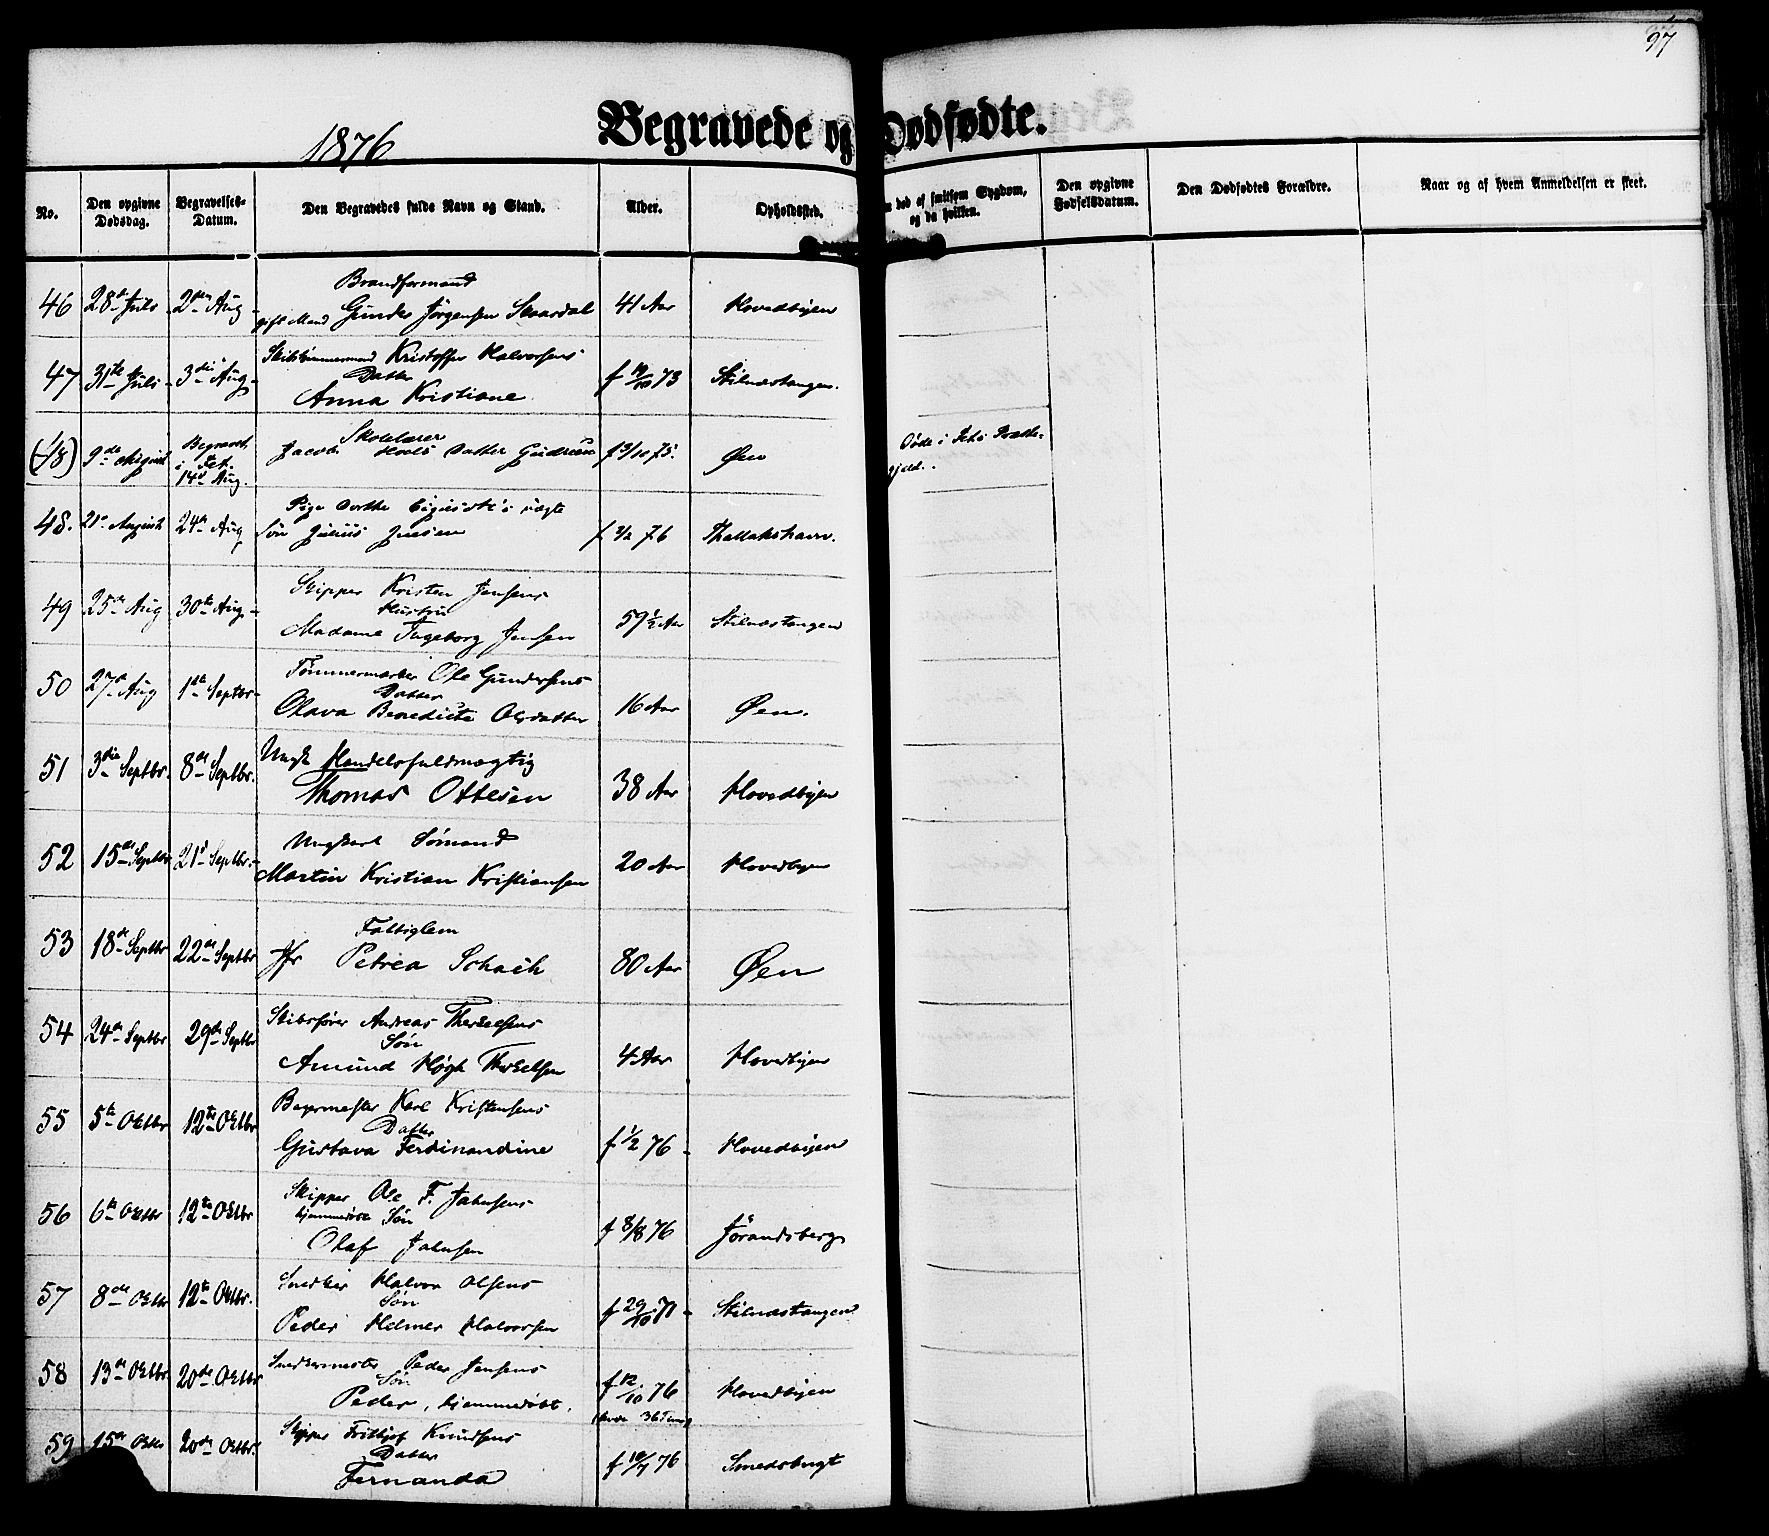 97
1876
Begravede og Dødfødte.
No.
Den opgivne Dødsdag.
Begravelses-Datum.
Den Begravedes fulde Navn og Stand.
Alder.
Opholdssted.
død af smitsom Sygdom, og da hvilken.
Den opgivne Fødselsdatum.
Den Dødfødtes Forældre.
Naar og af hvem Anmeldelsen er skeet.
Brandformand
46 28de Juli 2den Aug gift Mand Gunder Jørgensen Skaardal 41 Aar Hovedbyen
Skibstømmermand Kristoffer Halvorsens
47 31te Juli 3die Aug Datter f 73 Stilnæstangen
Anna Kristiane
Skolelærer
9de August Begravet i 14de Aug. Jacob Datter Gudrun f 75. Øen Døde i
Pige Dorthe uægte
48. 21de August 24de Aug Søn Julius Jensen f 76 Thallakshavn.
Skipper Kristen Jensens
49 25de Aug 30te Aug Hustru 59½ Aar Stilnæstangen
Madame Ingeborg Jensen
Tømmermand Ole Gundersens
50 27de Aug 1ste Septbr Datter 16 Aar Øen.
Olava Benedicte Olsdatter
51 3die Septbr. 8de Septbr. Ungk Handelsfuldmægtig
Thomas Ottesen 38 Aar Hovedbyen
Ungkarl Sømand
52 15de Septbr 21de Septbr. Martin Kristian Kristiansen 20 Aar Hovedbyen
Fattiglem
53 18de Septbr 22de Septbr Jfr Petrea Schach 80 Aar Øen
Skibsfører Andreas Therkelsens
54 24de Septbr 29de Septbr Søn 4 Aar Hovedbyen
Amund Høgh Therkelsen
Bagermester Karl Kristensens
55 5te Oktbr 12te Oktbr Datter f 1/2 76 Hovedbyen
Gustava Ferdinandine
Skipper Ole F. Jahnsens
56 6te Oktbr 12te Oktbr hjemmedøbt Søn f 8/8 76 Jørandsberg
Olaf Jahnsen
Snedker Halvor Olsens
57 8de Oktbr 12te Oktbr. Søn f 29/10 71 Stilnæstangen
Peder Helmer Halvorsen
Snedkermester Peder Jensens
58 13de Oktbr. 20de Oktbr Søn f 12/10 76 Hovedbyen
Peder, hjemmedøbt.
Skipper Frithjof Knudsens
59 15de Oktbr 20de Oktbr. Datter f 76 Smedsbugt
Fernanda